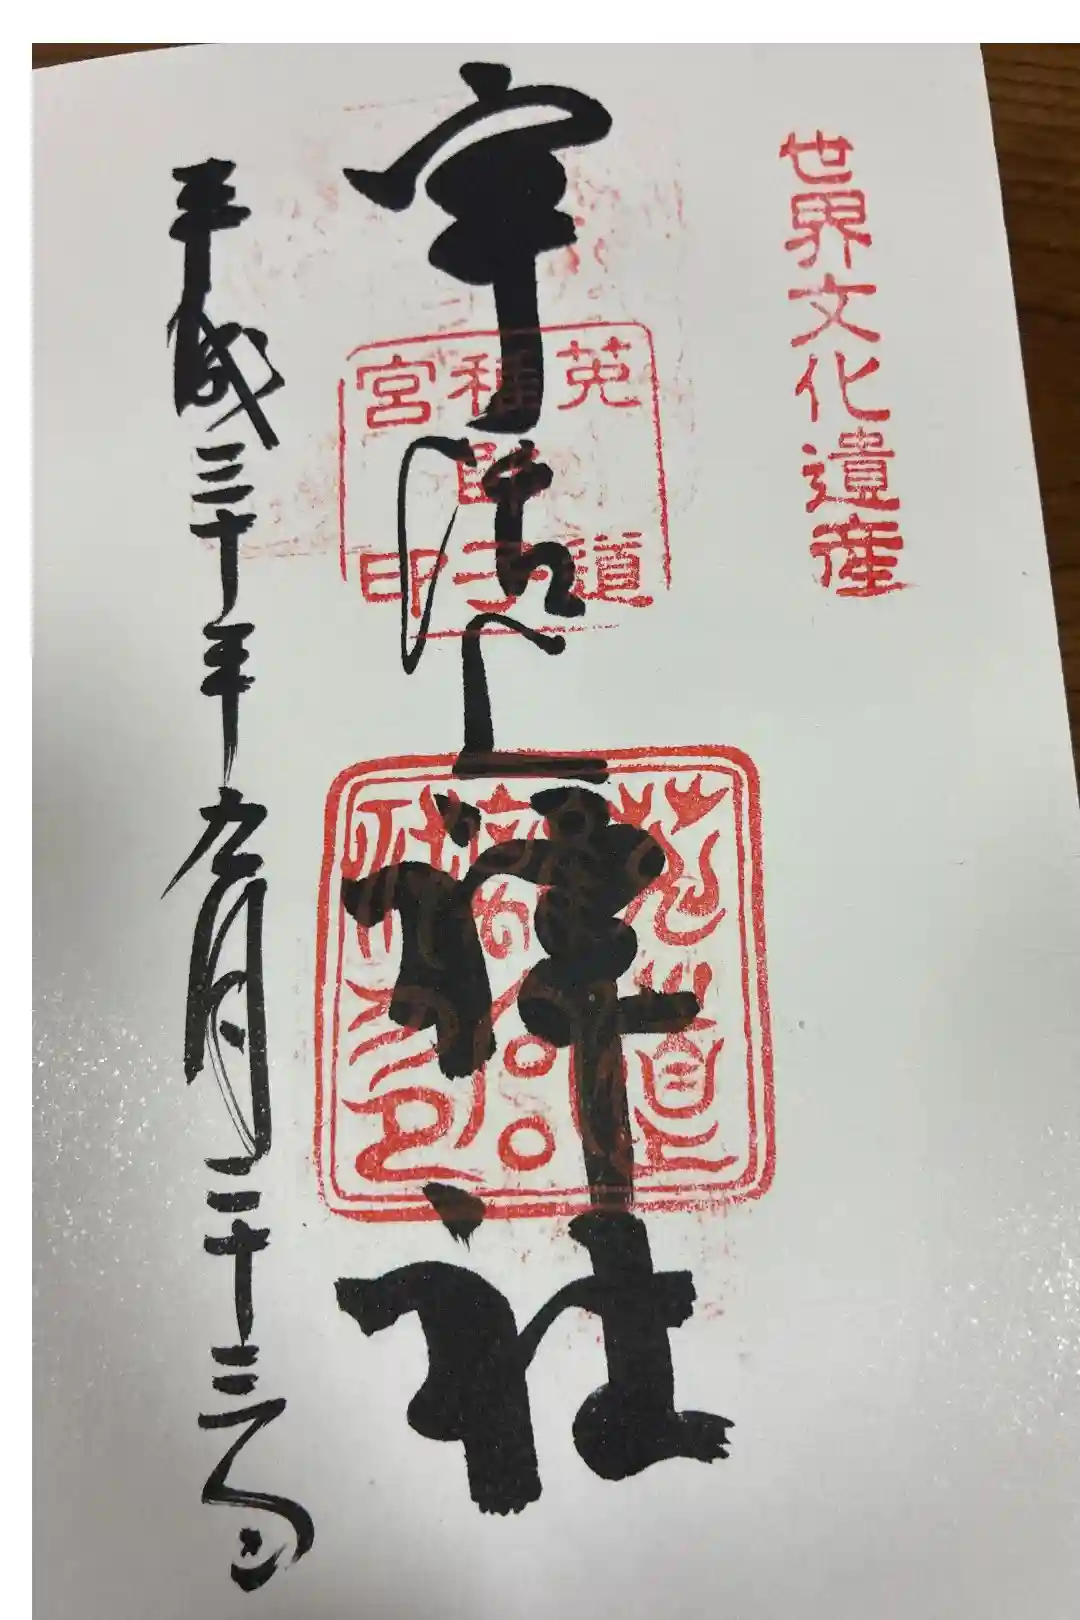 世界文化遺産
宇治上神社
菟道
稚郎子
宮印
平成三十年九月二十三日